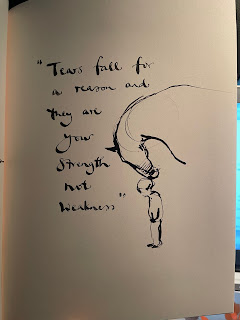 "Tears fall for
a reason and
they are
your
strength
not
weakness"